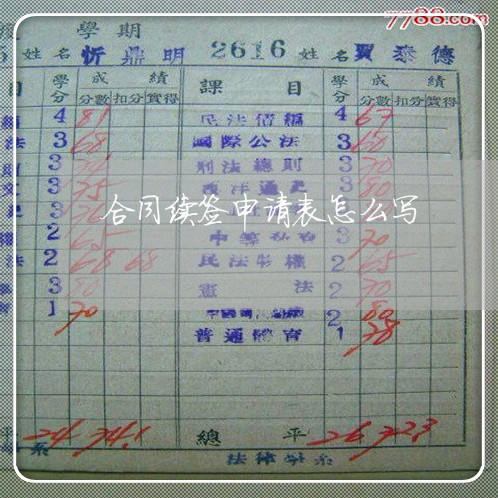 7788.com
學期
姓名 忻鼎明 2616 姓名 賈泰德
目 學分 成績 課目 學分 成績
分數 扣分 實得 分數 扣分 實得
4 81 民法債編 4 67
法 3 68 國際公法 3 60
3 刑法總則 3 70
3 75 西洋通史 3 80
3
合同续签申请表怎么写
2 65 3 70
法 2 68 68 民法物權 2 65
3 80 憲法 2 70
1 70 2 80
普通體育 1 78
平 24 74.1 總平 26 72.3
系 法律學系